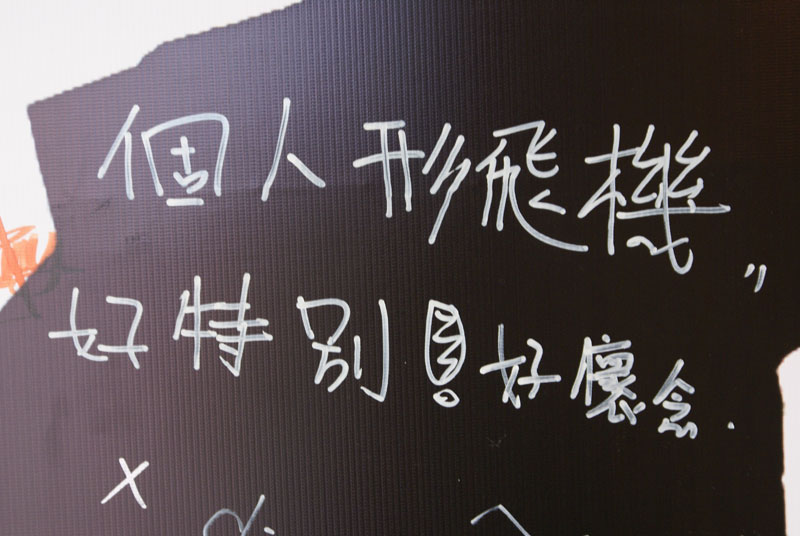 個人形飛機"
好特別！好懷念.